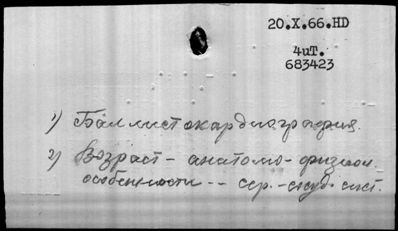 20.X.66.HD
4иT.
683423
1) Баллистокардиография.
2) Возраст - анатомо-физиол.
особенности -- сер.-сосуд. сист.